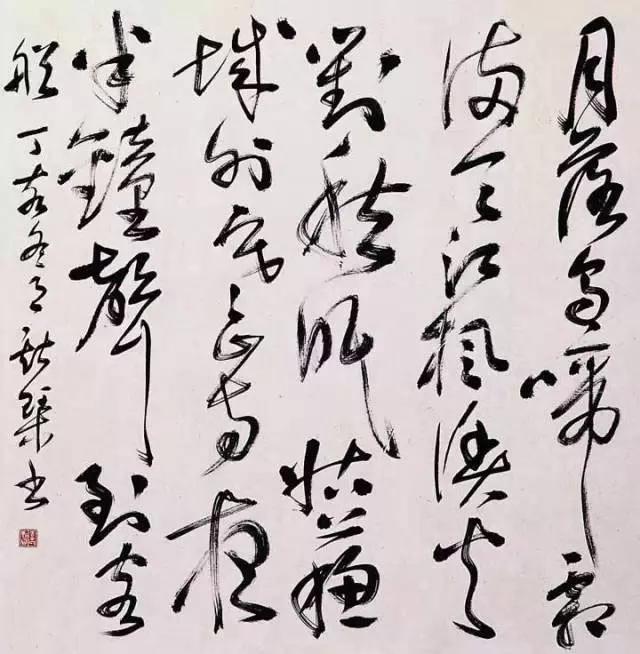 月落烏啼霜
滿天江楓漁火
對愁眠姑蘇
城外寒山寺夜
半鐘聲到客
船 丁亥冬月 書